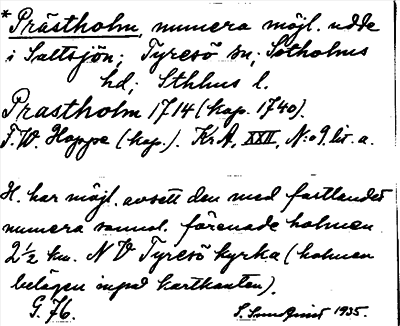 * Prästholm, numera möjl. udde
i Saltsjön; Tyresö sn; Sotholms
hd; Sthlms l.
Prastholm 1714 (kop. 1740).
F. W. Hoppe (kop.). KrA, XXII, N:o 9 lit. a.
H. har möjl. avsett den med fastlandet
numera sannol. förenade holmen
2½ km. NV Tyresö kyrka (holmen
belägen invid kartkanten).
G. 76. 1935.